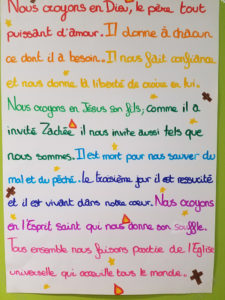 Nous croyons en Dieu, le père tout
puissant d'amour. Il donne à chacun
ce dont il a besoin. Il nous fait confiance
et nous donne la liberté de croire en lui.
Nous croyons en Jésus son fils, comme il a
invité Zachée il nous invite aussi tels que
nous sommes. Il est mort pour nous sauver du
mal et du péché. le troisième jour il est ressucité
et il est vivant dans notre coeur. Nous croyons
en l'Esprit saint qui nous donne son souffle.
Tous ensemble nous faisons partie de l'Eglise
universelle qui accueille tous le monde..